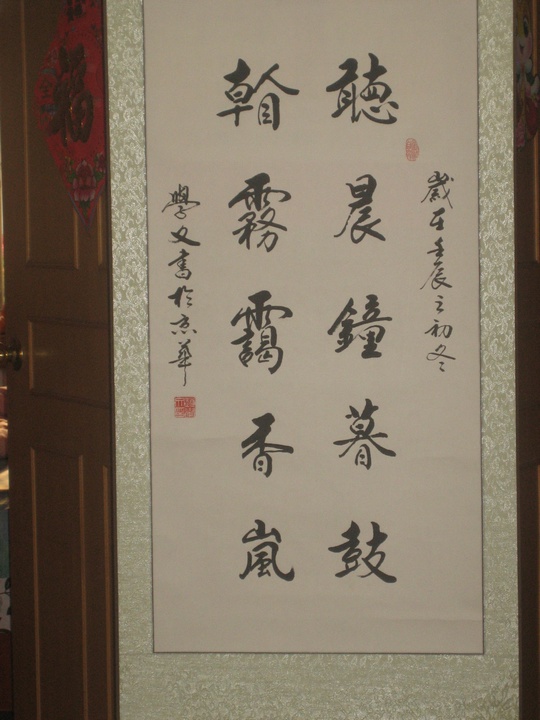 歲在壬辰之初冬
聽晨鐘暮鼓
霧靄香嵐
學文書於京華
福